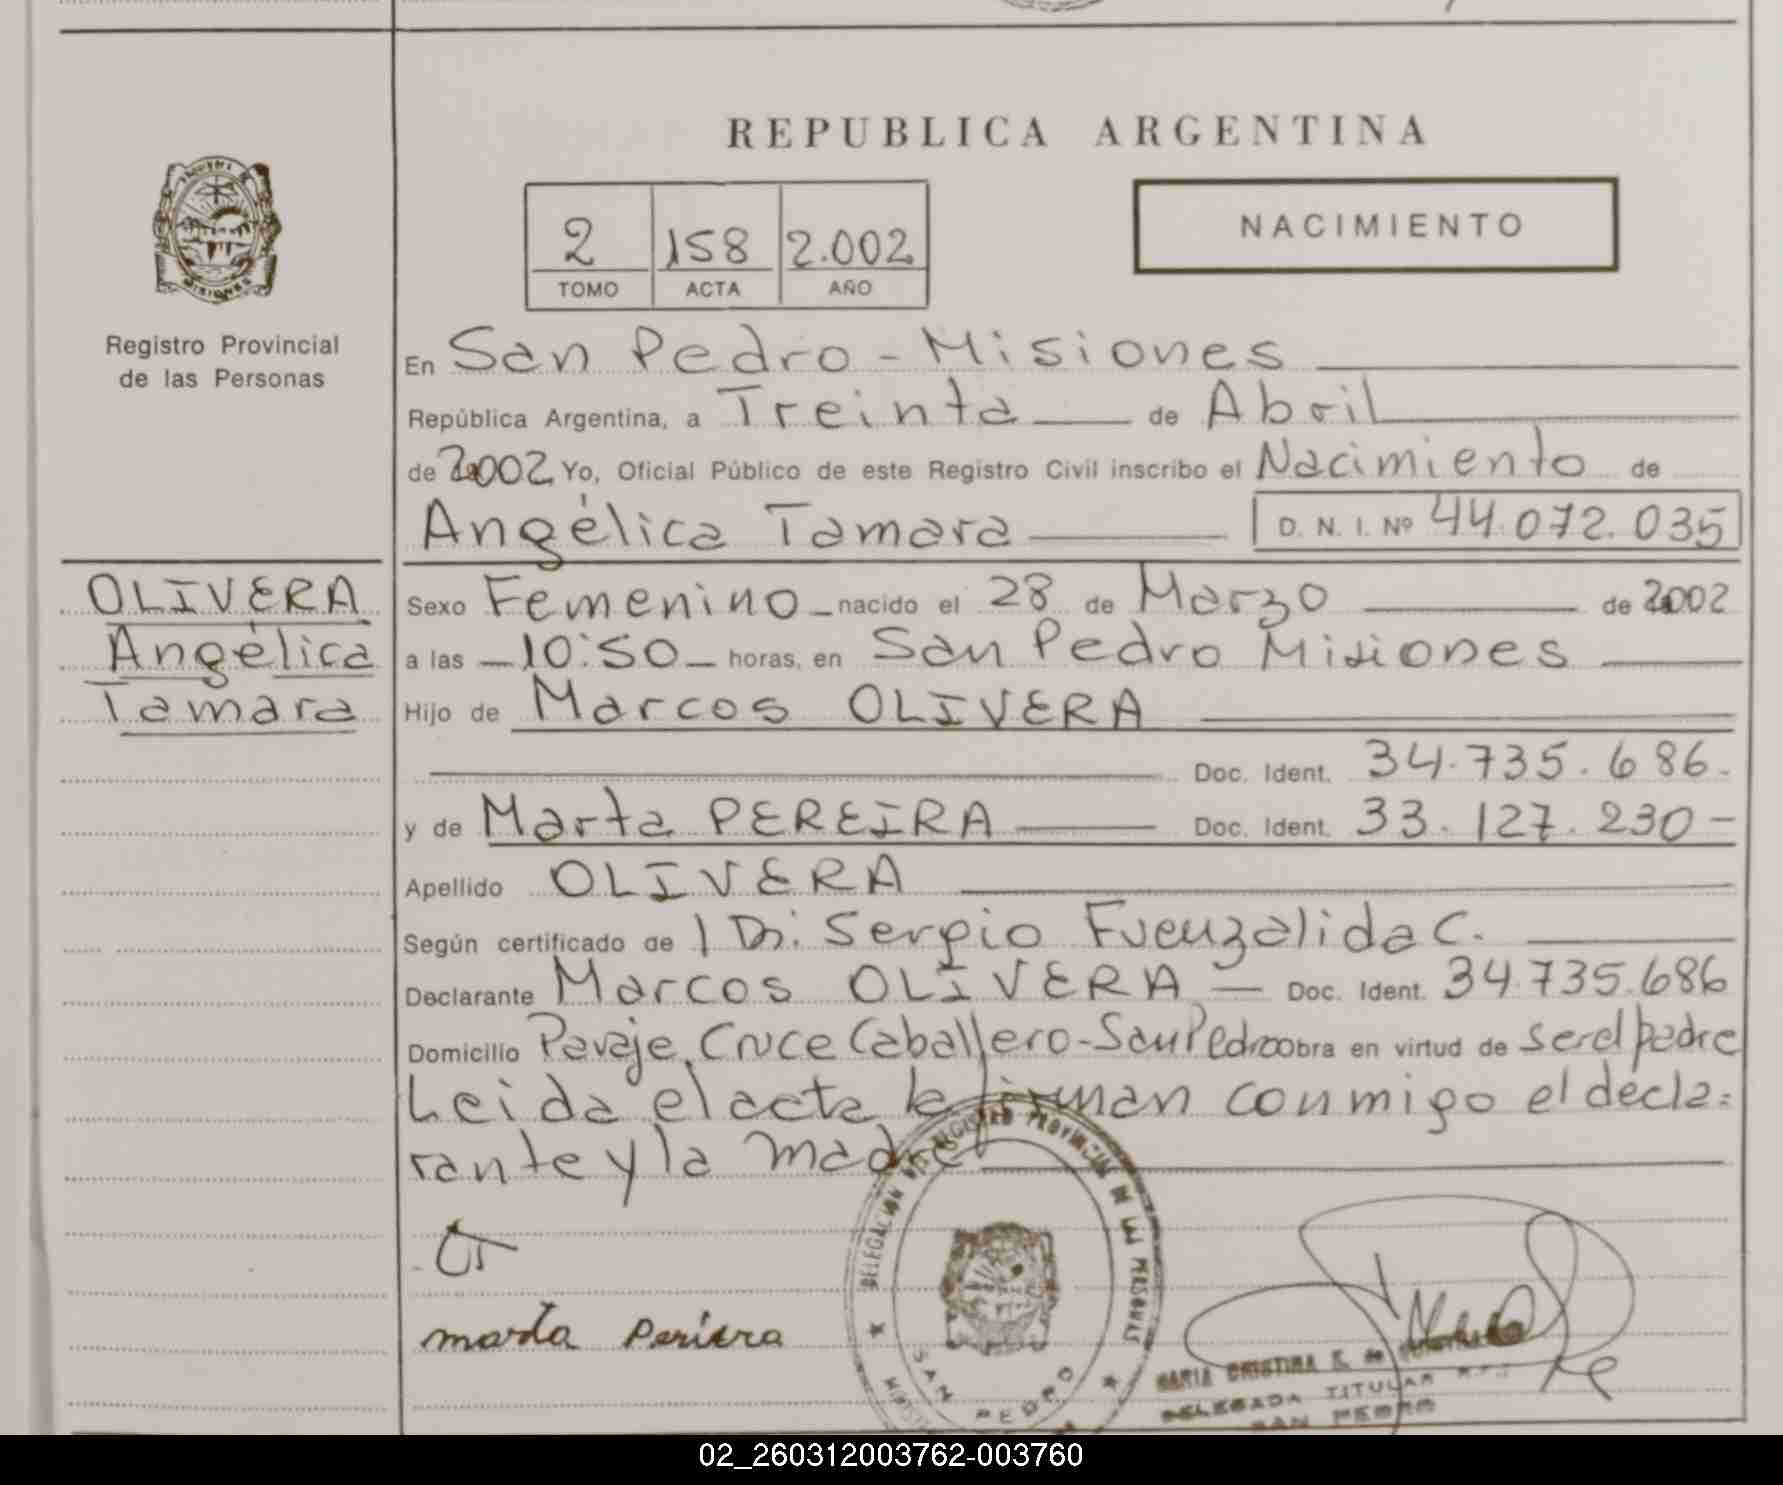 REPUBLICA ARGENTINA
NACIMIENTO
2 158 2.002
TOMO ACTA AÑO
Registro Provincial
de las Personas
En San Pedro - Misiones
República Argentina, a Treinta de Abril
de 2002 Yo, Oficial Público de este Registro Civil inscribo el Nacimiento de
Angélica Tamara D. N. I. Nº 44.072.035
OLIVERA
Angélica
Tamara
Sexo Femenino nacido el 28 de Marzo de 2002
a las 10:50 horas, en San Pedro Misiones
Hijo de Marcos OLIVERA
Doc. Ident. 34.735.686.
y de Marta PEREIRA Doc. Ident. 33.127.230
Apellido OLIVERA
Según certificado de Sergio Fuenzalida C.
Declarante Marcos OLIVERA Doc. Ident. 34.735.686
Domicilio Paraje Cruce Caballero-San Pedro obra en virtud de ser el padre
Leida el acta la firman conmigo el decla=
rante y la madre
marta Periera
DELEGACION DEL REGISTRO PROVINCIAL DE LAS PERSONAS
SAN PEDRO
MARIA CRISTINA E. de
DELEGADA TITULAR
SAN PEDRO
02_260312003762-003760